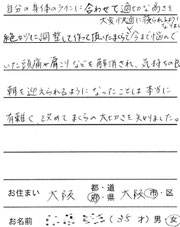 自分の身体のラインに合わせて適切な高さを
大変小尺値に扱られるように
絶妙に調整して作って頂いたまくらで今まで悩んで
いた頭痛や肩こりなどを解消され、気持ちの良い
朝を迎えられるようになったことは本当に
有難く改めてまくらの大切さを知りました。
お住まい 大阪 都・道・府・県 大阪 市・区
お名前 (35才) 男・女